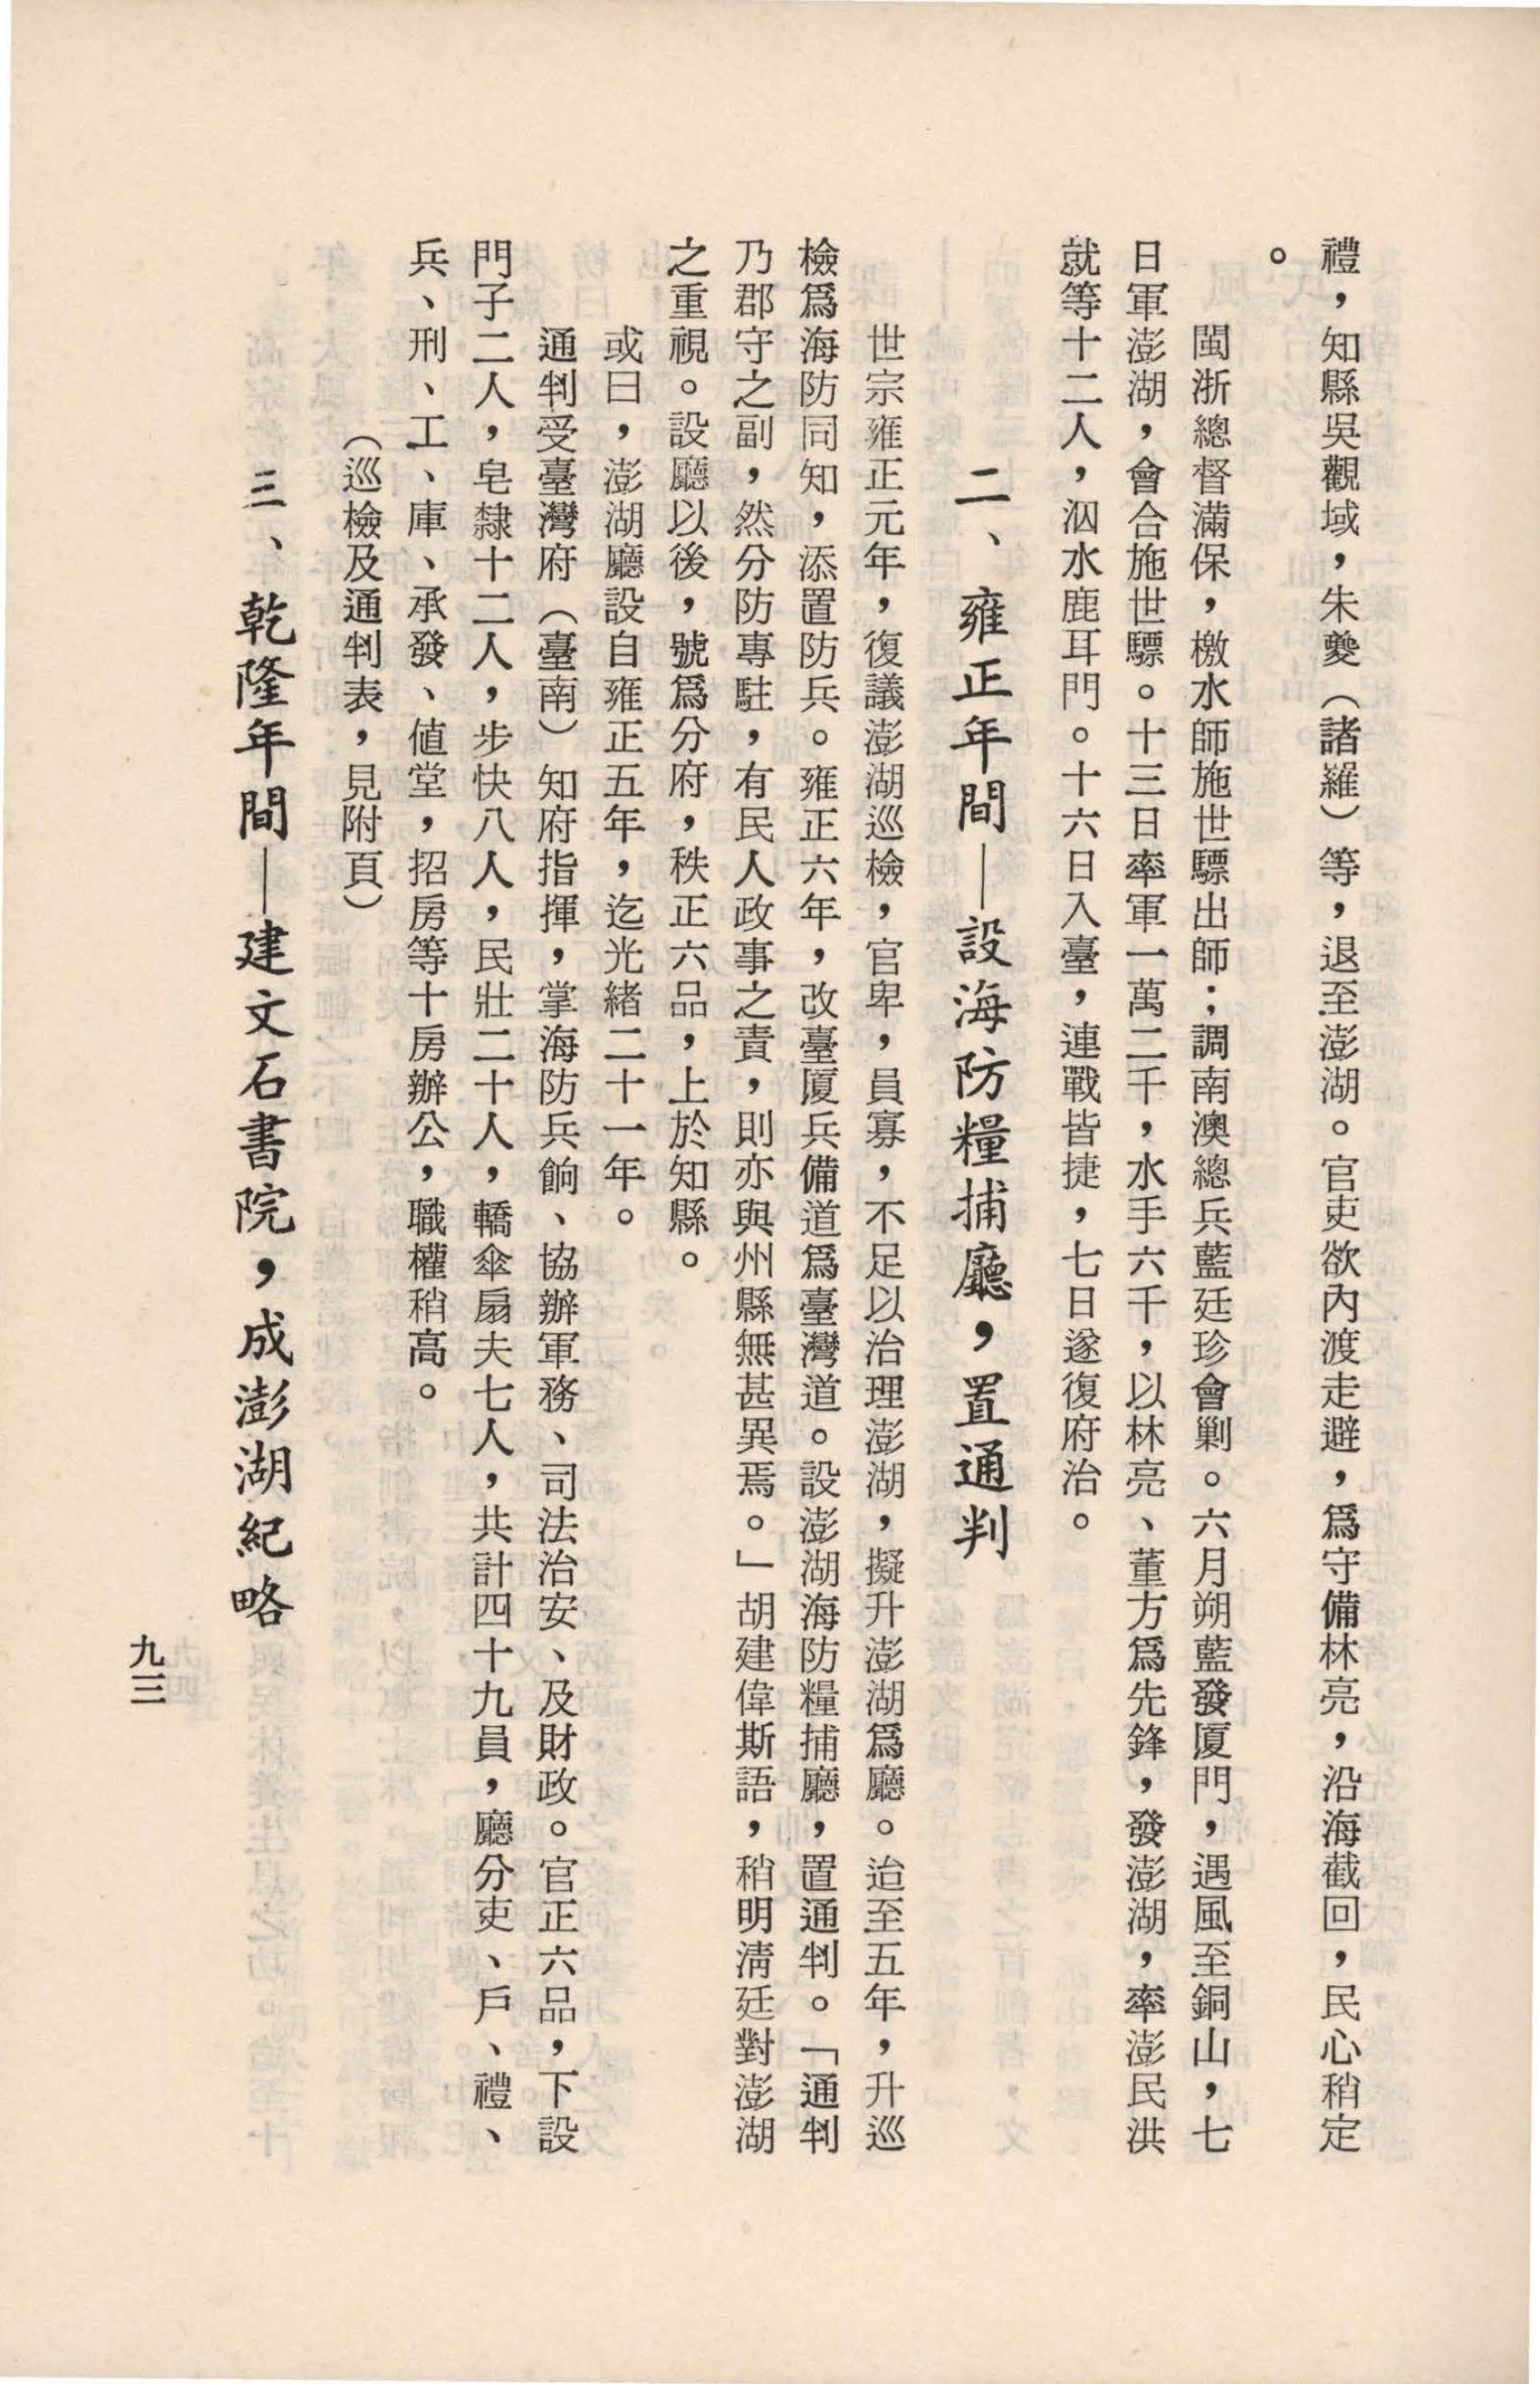 禮，知縣吳觀域，朱夔（諸羅）等，退至澎湖。官吏欲內渡走避，爲守備林亮，沿海截回，民心稍定
。
閩浙總督滿保，檄水師施世驃出師；調南澳總兵藍廷珍會剿。六月朔藍發厦門，遇風至銅山，七
日軍澎湖，會合施世驃。十三日率軍一萬二千，水手六千，以林亮、董方爲先鋒，發澎湖，率澎民洪
就等十二人，泅水鹿耳門。十六日入臺，連戰皆捷，七日遂復府治。
二、雍正年間—設海防糧捕廳，置通判
世宗雍正元年，復議澎湖巡檢，官卑，員寡，不足以治理澎湖，擬升澎湖爲廳。迨至五年，升巡
檢爲海防同知，添置防兵。雍正六年，改臺厦兵備道爲臺灣道。設澎湖海防糧捕廳，置通判。「通判
乃郡守之副，然分防專駐，有民人政事之責，則亦與州縣無甚異焉。」胡建偉斯語，稍明淸廷對澎湖
之重視。設廳以後，號爲分府，秩正六品，上於知縣。
或曰，澎湖廳設自雍正五年，迄光緒二十一年。
通判受臺灣府（臺南）知府指揮，掌海防兵餉、協辦軍務、司法治安、及財政。官正六品，下設
門子二人，皂隸十二人，步快八人，民壯二十人，轎傘扇夫七人，共計四十九員，廳分吏、戶、禮、
兵、刑、工、庫、承發、値堂，招房等十房辦公，職權稍高。
（巡檢及通判表，見附頁）
三、乾隆年間—建文石書院，成澎湖紀略
九三